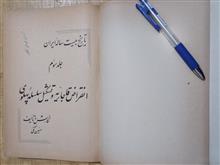 تاریخ بیست ساله ایران
جلد سوم
انقراض قاجاریه و تشکیل سلسله پهلوی
حسین مکی